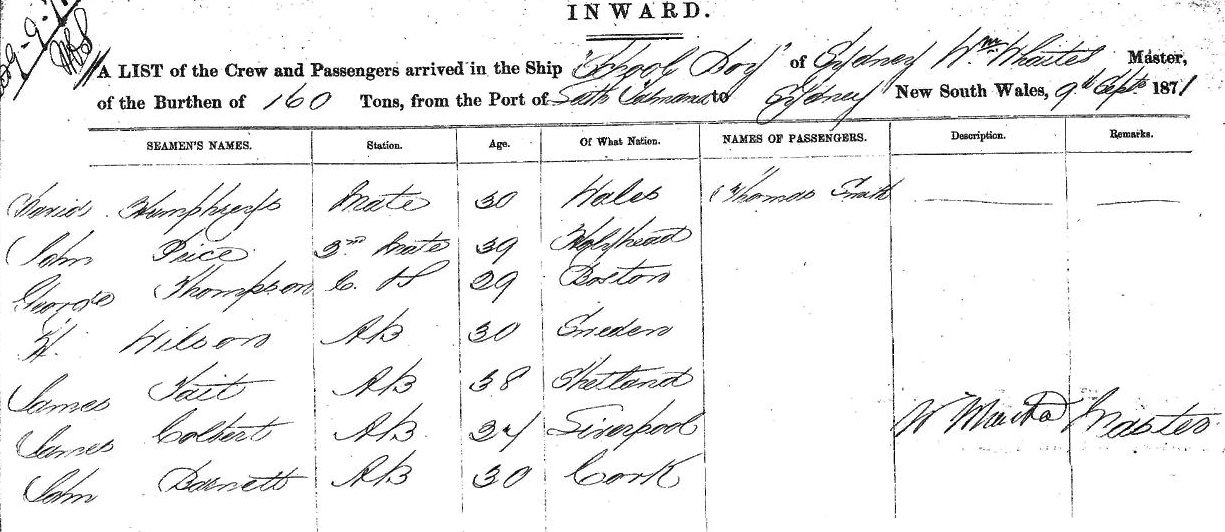 INWARD.
A LIST of the Crew and Passengers arrived in the Ship "School Boy" of Sydney Wm Master,
of the Burthen of 160 Tons, from the Port of to Sydney New South Wales, 9th Septr 1871
SEAMEN'S NAMES. Station. Age. Of What Nation. NAMES OF PASSENGERS. Description. Remarks.
David Humphreys Mate 30 Wales 1 Thomas Smith
John Price 2nd Mate 39 Holyhead
George Thompson C. S 29 Boston
H. Wilson AB 30 Sweden
James Tait AB 38 Shetland
James Colbert AB 24 Liverpool W Master
John Barnett AB 30 Cork